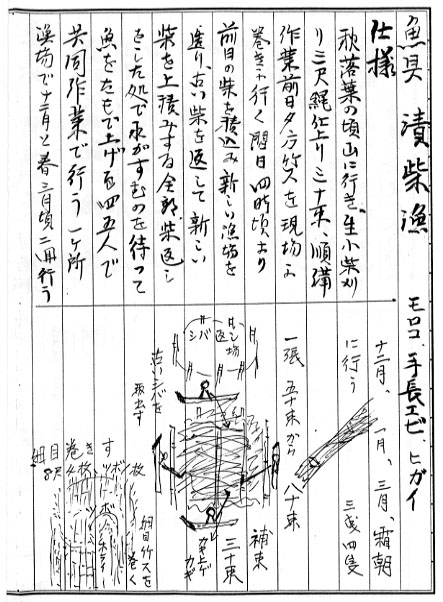 魚具 漬柴漁 モロコ、手長エビ、ヒガイ
仕様
十二月、一月、三月、霜朝
に行う 三隻四隻
秋落葉の頃山に行き、生小柴刈
り三尺縄仕上り三十束、順溝
作業前日夕方竹スを現場に
巻きに行く 翌日四時頃より
前日の柴を積込み新しい漁場を
造り、古い柴を返して新しい
柴を上積みする 全部柴返し
をした処で水がすむのを待って
魚をたもで上げる 四五人で
共同作業で行う 一ヶ所
漁場で十二月と春三月頃二回行う
一張 五十束から 八十束
補束
三十束
カギ
シバ返シ場
古いシバを
取出す
細目竹スを
巻く
ツボ
細目
8尺